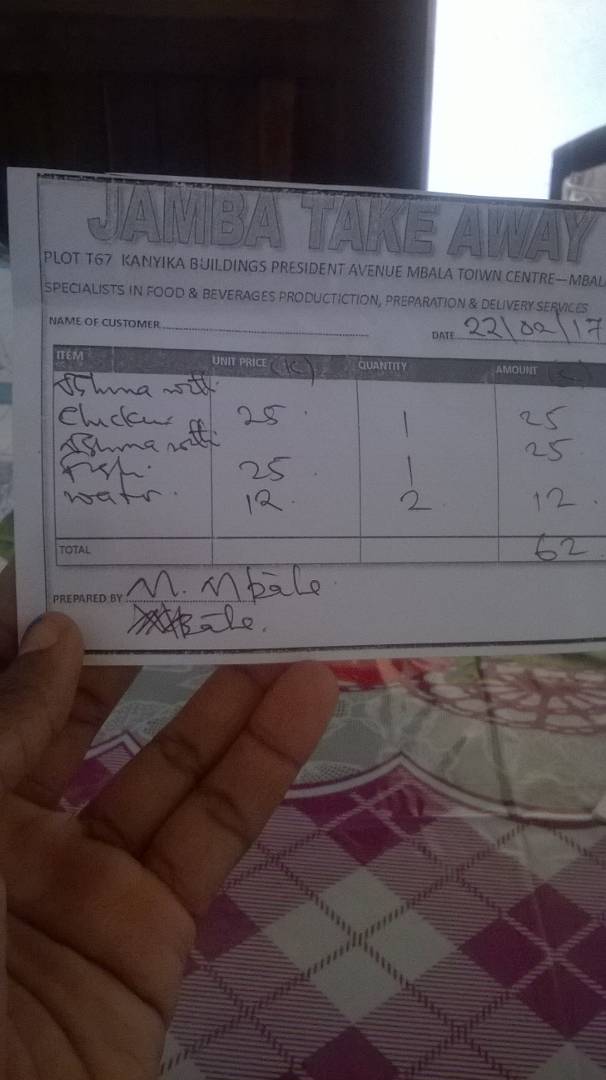 JAMBA TAKE AWAY
PLOT T67 KANYIKA BUILDINGS PRESIDENT AVENUE MBALA TOIWN CENTRE—MBALA
SPECIALISTS IN FOOD & BEVERAGES PRODUCTICTION, PREPARATION & DELIVERY SERVICES
NAME OF CUSTOMER DATE 22/02/17
ITEM UNIT PRICE (K) QUANTITY AMOUNT
with
Chicken 25 1 25
with 25
Fish. 25 1
water. 12 2 12
TOTAL 62
PREPARED BY M. Mbale
Bale.